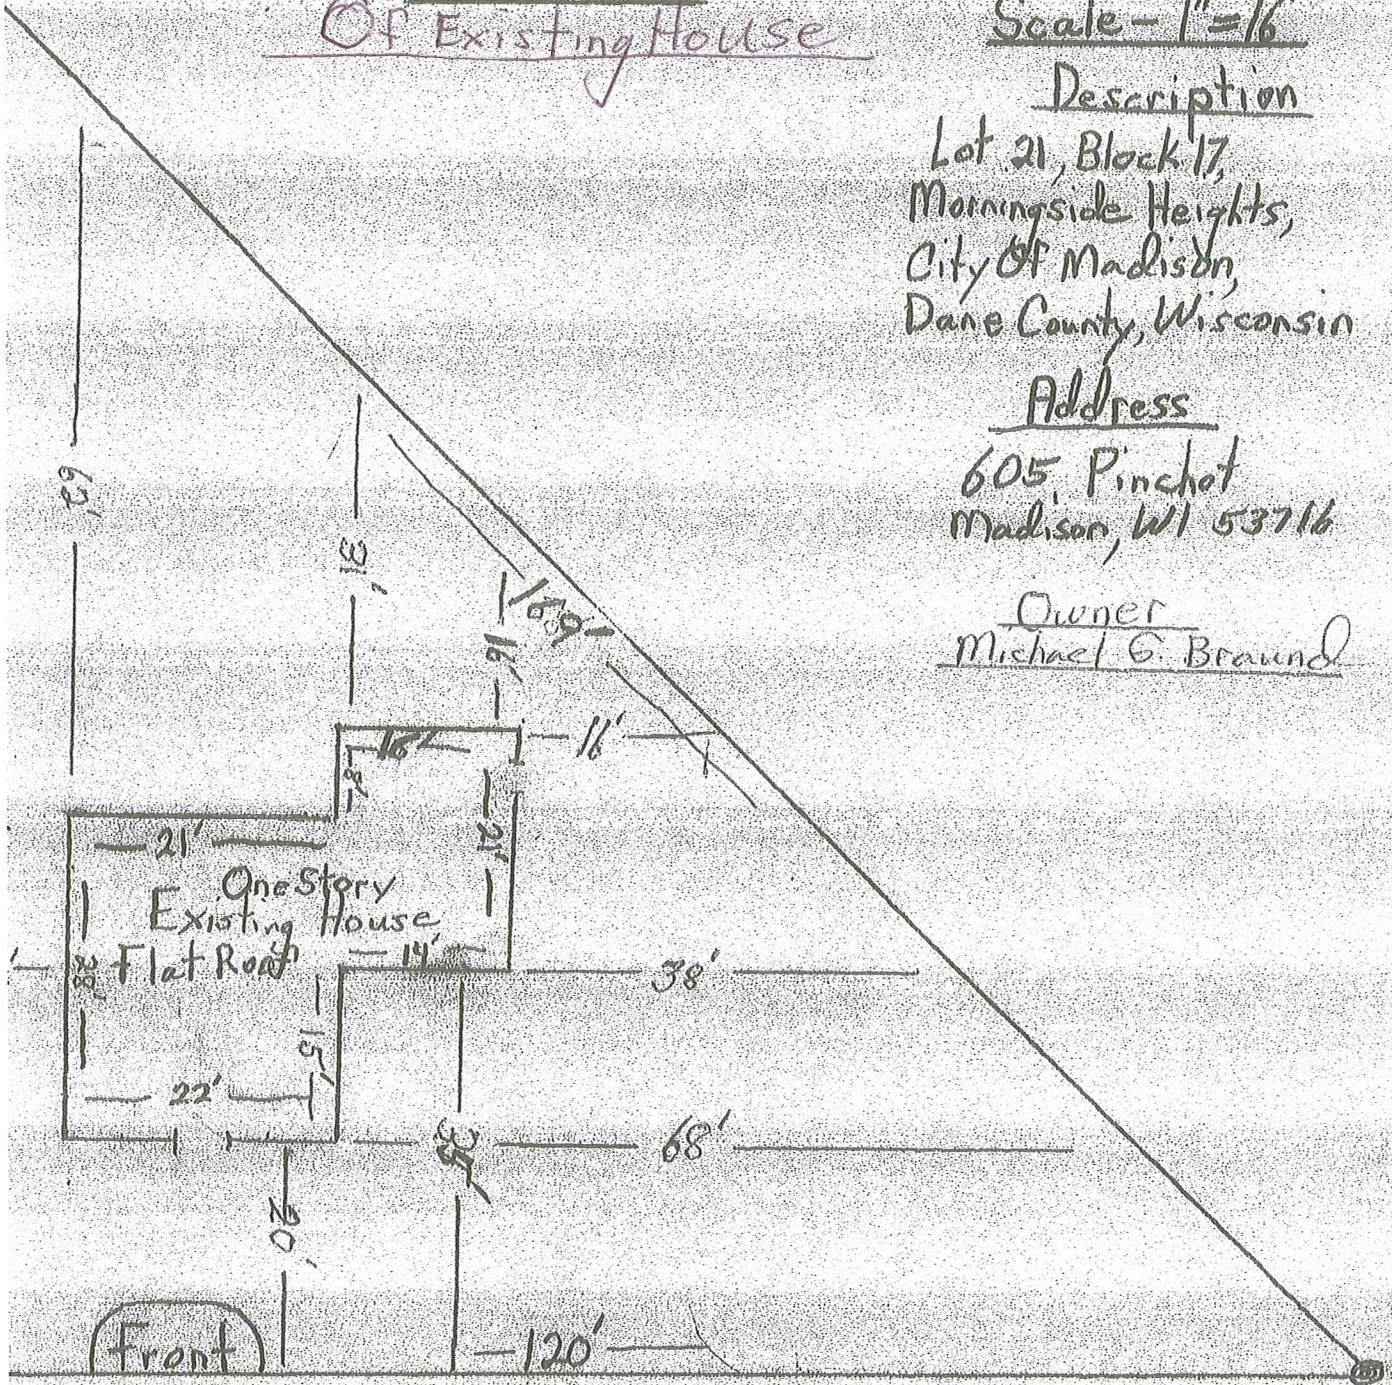 Of Existing House
Scale - 1"=16
Description
Lot 21, Block 17,
Morningside Heights,
City Of Madison,
Dane County, Wisconsin
Address
605 Pinchot
Madison, WI 53716
Owner
Michael G. Braund
62'
31'
169'
16'
16'
11'
8'
21'
21'
One Story
Existing House
Flat Roof
14'
38'
15'
22'
68'
35'
20'
Front
120'